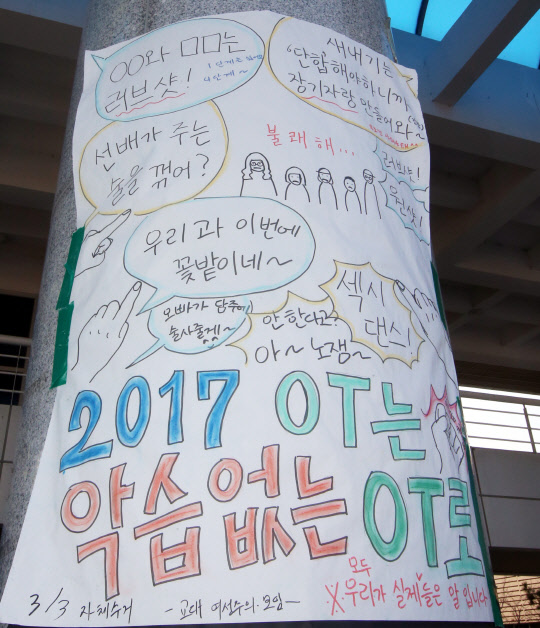 OO와 ㅁㅁ는
러브샷!
새내기는
'단합해야하니까
장기자랑 만들어와~
선배가 주는
술을 꺾어?
불쾌해...
러브샷!
우리 과 이번에
꽃밭이네~
오빠가 담주에
술사줄게~
안한다고?
아~ 노잼~
섹시
댄스!
2017 OT는
악습 없는
OT로
3/3 자체수거
-교대 여성주의 모임-
※ 우리가 모두 실제 들은 말입니다